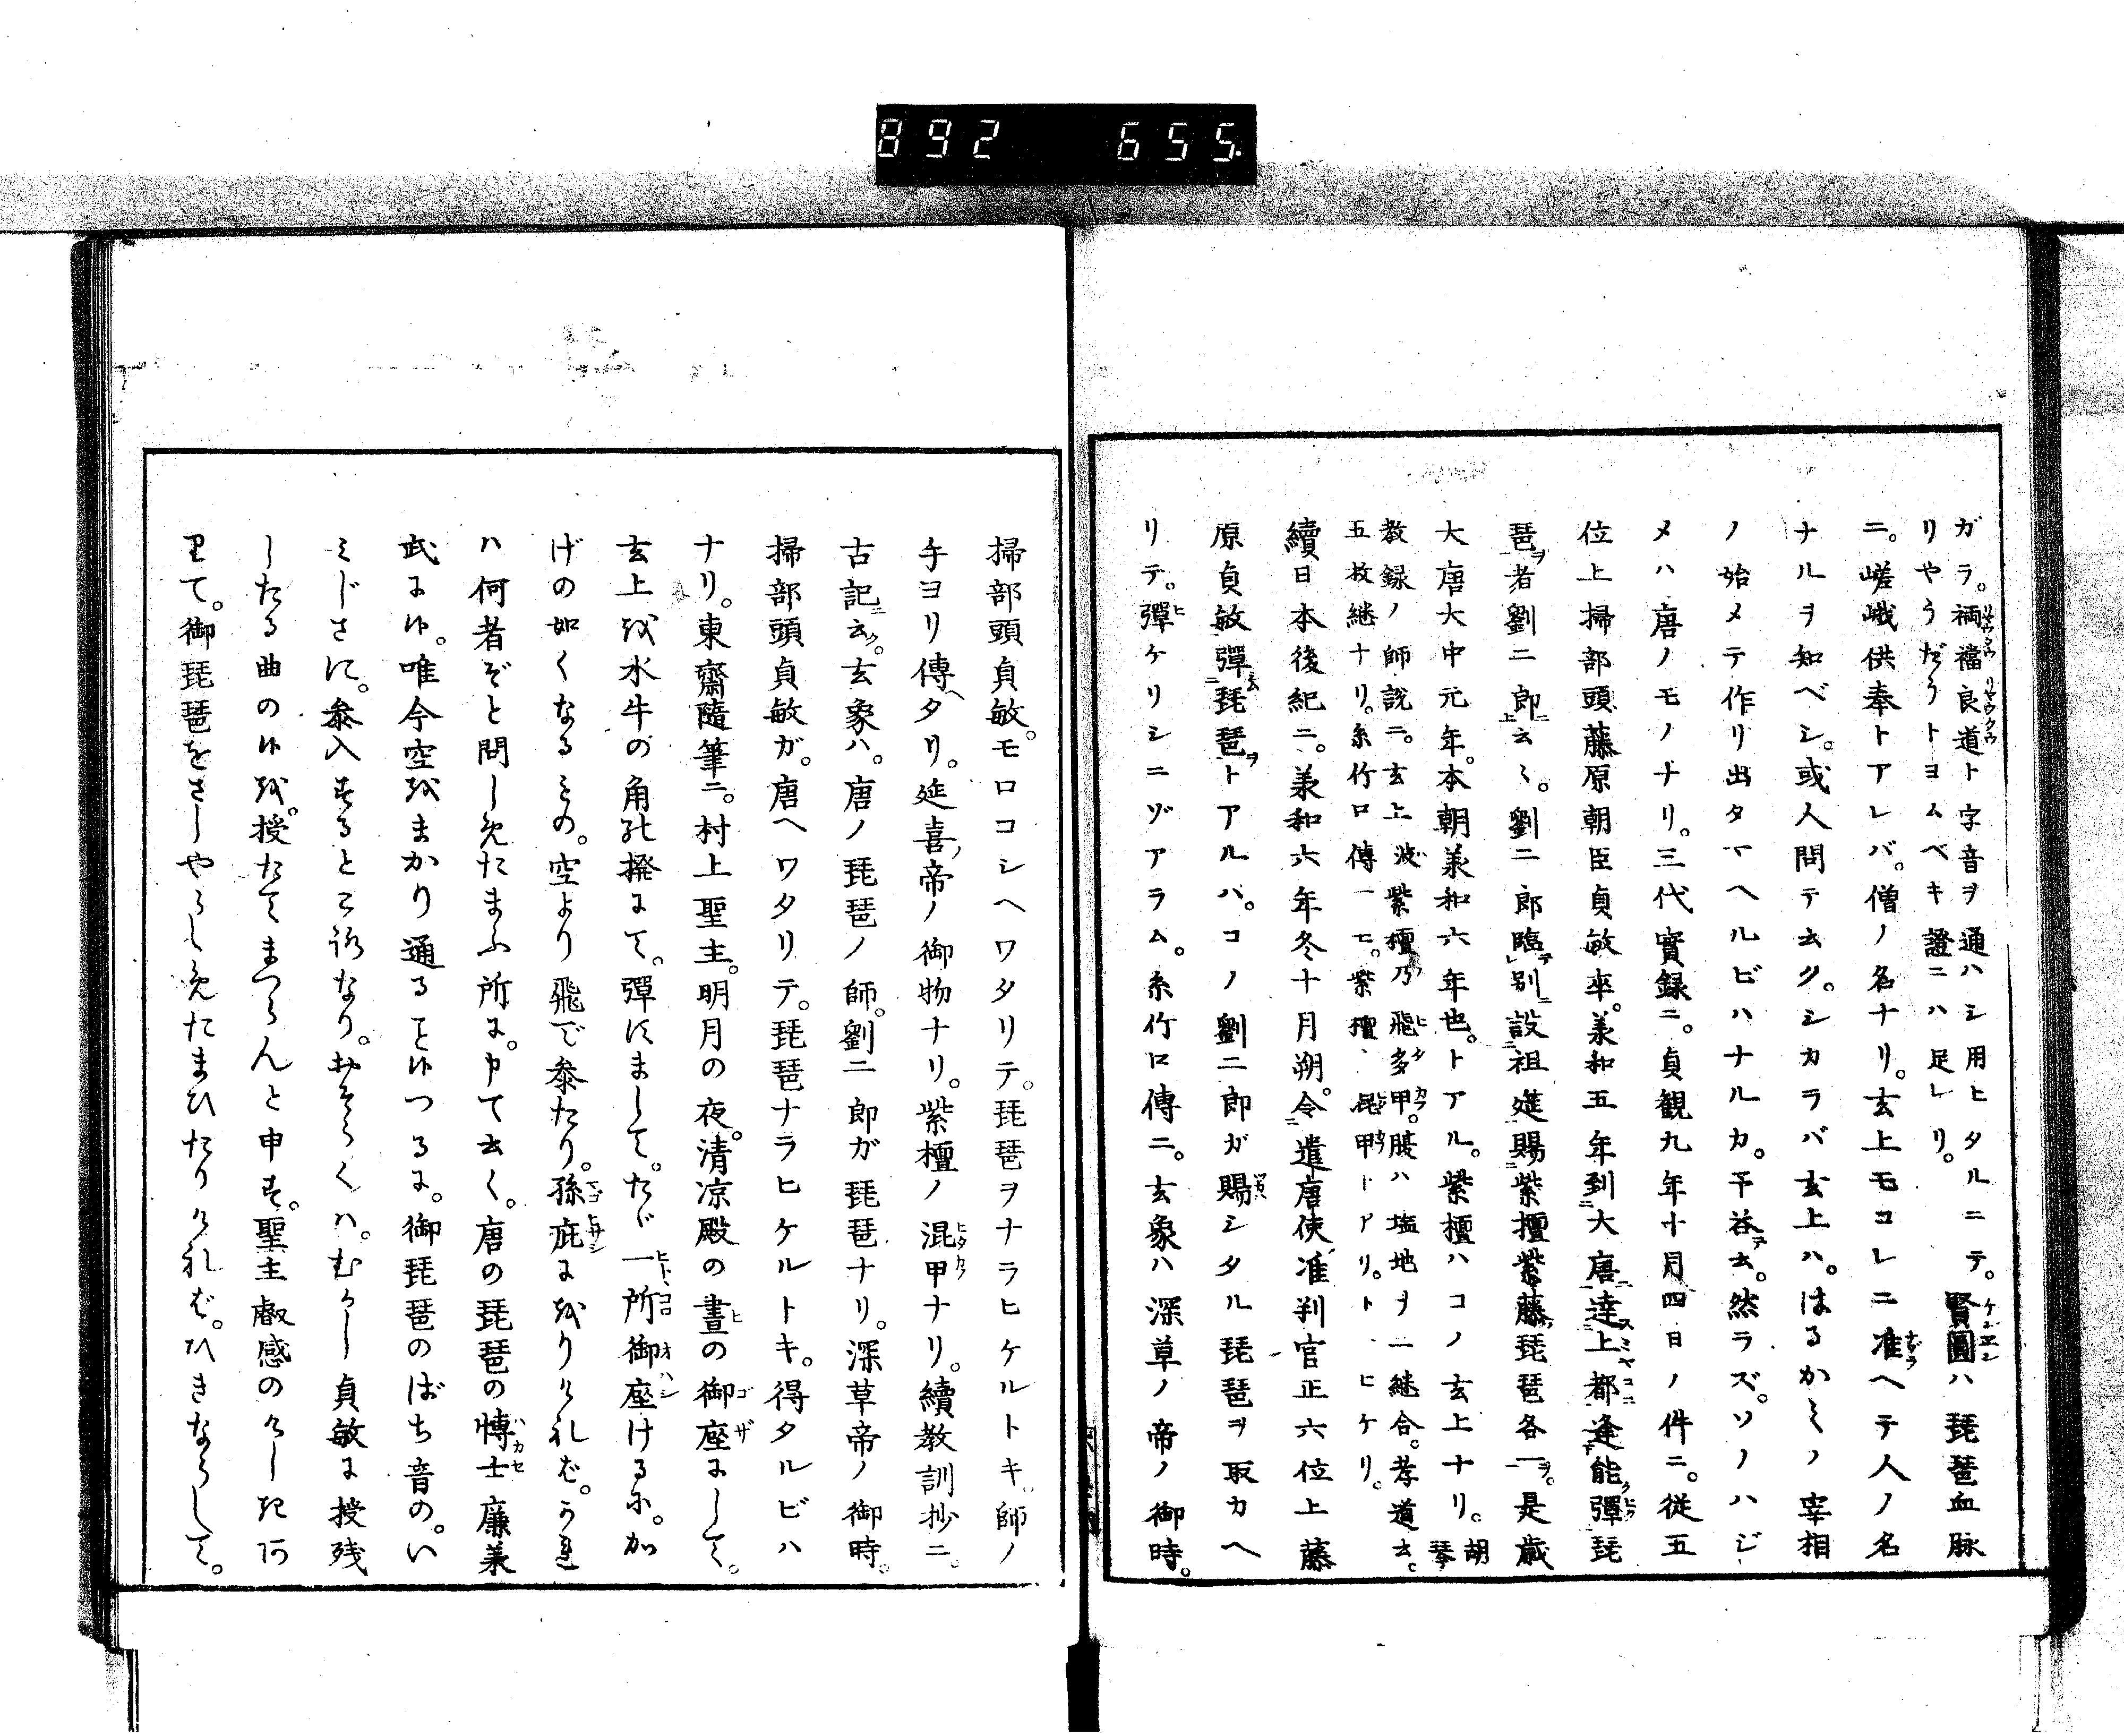 892 655
ガラ。裲襠良道ト字音ヲ通ハシ用ヒタルニテ。
リやうだうトヨムベキ證ニハ足レリ。
賢圓ハ琵琶血脉
ニ。嵯峨供奉トアレバ。僧ノ名ナリ。玄上モコレニ准ヘテ人ノ名
ナルヲ知ベシ。或人問テ云ク。シカラバ玄上ハ。はるかミノ宰相
ノ始メテ作リ出タマヘルビハナルカ。予答云。然ラズ。ソノハジ
メハ唐ノモノナリ。三代實録ニ。貞観九年十月四日ノ件ニ。従五
位上掃部頭藤原朝臣貞敏卒。美和五年到大唐達上都逢能彈琵
琶者劉二郎云〻。劉二郎臨別設祖筵賜紫檀紫藤琵琶各一。是歳
大唐大中元年。本朝美和六年也。トアル。紫檀ハコノ玄上ナリ。胡琴
教録ノ師説ニ。玄上波紫檀乃飛多甲。腹ハ塩地ヲ一継合。孝道云。
五枚継ナリ。糸竹口傳一ニ。紫檀ノ混甲トアリ。トヒケリ。
續日本後紀ニ。美和六年冬十月朔。令遣唐使准判官正六位上藤
原貞敏彈琵琶トアルハ。コノ劉二郎ガ賜シタル琵琶ヲ取カヘ
リテ。彈ケリシニゾアラム。糸竹口傳ニ。玄象ハ深草ノ帝ノ御時。
掃部頭貞敏。モロコシヘワタリテ。琵琶ヲナラヒケルトキ。師ノ
手ヨリ傳ヘタリ。延喜ノ帝ノ御物ナリ。紫檀ノ混甲ナリ。續教訓抄ニ。
古記ニ云ク。玄象ハ。唐ノ琵琶ノ師。劉二郎ガ琵琶ナリ。深草帝ノ御時。
掃部頭貞敏ガ。唐ヘワタリテ。琵琶ナラヒケルトキ。得タルビハ
ナリ。東齋隨筆ニ。村上聖主。明月の夜。清凉殿の晝の御座にして。
玄上を水牛の角の撥にて。彈にまして。たゞ一所御座けるに。加
げの如くなるもの。空より飛で参たり。孫庇にをりけれど。これ
ハ何者ぞと問しめたまふ所に。申て云く。唐の琵琶の博士廉美
武に候。唯今空をまかり通ること候つるに。御琵琶のばち音の。い
ミじさに。参入するところなり。おそらくハ。むかし貞敏に授残
したる曲の候を。授たてまつらんと申す。聖主叡感のけしきア
リて。御琵琶をさしやらしめたまひたりければ。ひきならして。